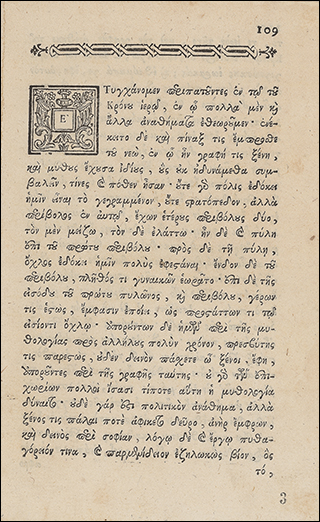 109
Ε
Τυγχάνομεν περιπατοῦντες ἐν τῷ τοῦ
Κρόνου ἱερῷ, ἐν ᾧ πολλὰ μὲν καὶ
ἄλλα ἀναθήματα ἐθεωροῦμεν· ἀνέ-
κειτο δὲ καὶ πίναξ τις ἔμπροσθε
τοῦ νεὼ, ἐν ᾧ ἦν γραφή τις ξένη,
καὶ μύθους ἔχουσα ἰδίους, οὓς οὐκ ἠδυνάμεθα συμ-
βαλεῖν, τίνες καὶ πόθεν ἦσαν· οὔτε γὰρ πόλις ἐδόκει
ἡμῖν εἶναι τὸ γεγραμμένον, οὔτε στρατόπεδον, ἀλλὰ
περίβολος ἐν αὑτῷ, ἔχων ἑτέρους περιβόλους δύο,
τὸν μὲν μείζω, τὸν δὲ ἐλάττω· ἦν δὲ καὶ πύλη
ἐπὶ τοῦ πρώτου περιβόλου· πρὸς δὲ τῇ πύλῃ,
ὄχλος ἐδόκει ἡμῖν πολὺς ἐφεστάναι· ἔνδον δὲ τοῦ
περιβόλου, πλῆθός τι γυναικῶν ἑωρᾶτο· ἐπὶ δὲ τῆς
εἰσόδου τοῦ πρώτου πυλῶνος, καὶ περιβόλου, γέρων
τις ἑστὼς, ἔμφασιν ἐποίει, ὡς προστάττων τι τῷ
εἰσιόντι ὄχλῳ· ἀπορούντων δὲ ἡμῶν περὶ τῆς μυ-
θολογίας πρὸς ἀλλήλους πολὺν χρόνον, πρεσβύτης
τις παρεστὼς, οὐδὲν δεινὸν πάσχετε ὦ ξένοι, ἔφη,
ἀποροῦντες περὶ τῆς γραφῆς ταύτης· οὐδὲ γὰρ τῶν ἐπι-
χωρίων πολλοὶ ἴσασι τίποτε αὕτη ἡ μυθολογία
δύναται· οὐδὲ γάρ ἐστι πολιτικὸν ἀνάθημα, ἀλλὰ
ξένος τις πάλαι ποτὲ ἀφίκετο δεῦρο, ἀνὴρ ἔμφρων,
καὶ δεινὸς περὶ σοφίαν, λόγῳ δὲ καὶ ἔργῳ πυθα-
γόρειόν τινα, καὶ παρμενίδειον ἐζηλωκὼς βίον, ὃς
τό,
3